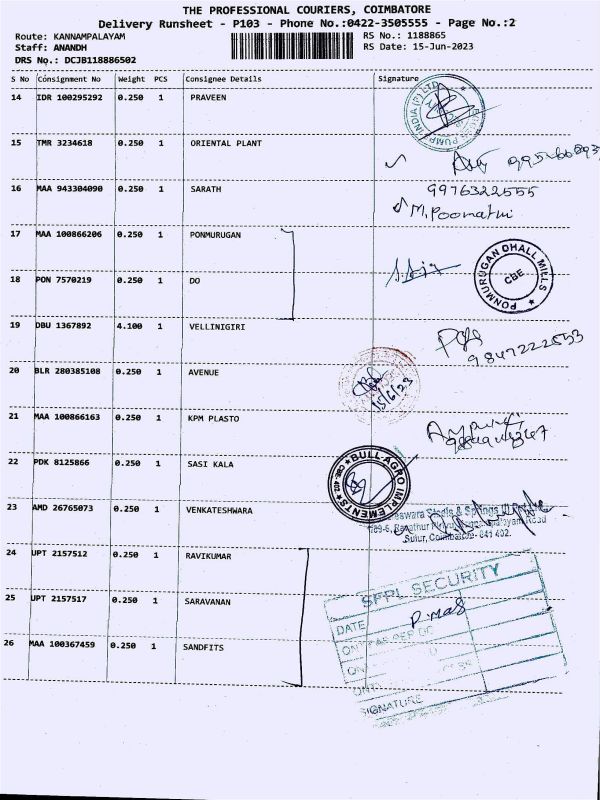 THE PROFESSIONAL COURIERS, COIMBATORE
Delivery Runsheet - P103 - Phone No.:0422-3505555 - Page No.:2
Route: KANNAMPALAYAM RS No.: 1188865
Staff: ANANDH RS Date: 15-Jun-2023
DRS No.: DCJB118886502
S No Consignment No Weight PCS Consignee Details Signature
14 IDR 100295292 0.250 1 PRAVEEN
PUMP INDIA (P) LTD
15 TMR 3234618 0.250 1 ORIENTAL PLANT
16 MAA 943304090 0.250 1 SARATH 9976322555
M.Poornathi
17 MAA 100866206 0.250 1 PONMURUGAN
18 PON 7570219 0.250 1 DO
PONMURUGAN DHALL MILLS
CBE
19 DBU 1367892 4.100 1 VELLINIGIRI
9847222553
20 BLR 280385108 0.250 1 AVENUE
15/6/23
21 MAA 100866163 0.250 1 KPM PLASTO
22 PDK 8125866 0.250 1 SASI KALA
BULL AGRO IMPLEMENTS
23 AMD 26765073 0.250 1 VENKATESHWARA
Steels & Springs
Road
Sulur, Coimbatore- 641 402.
24 UPT 2157512 0.250 1 RAVIKUMAR
25 UPT 2157517 0.250 1 SARAVANAN
26 MAA 100367459 0.250 1 SANDFITS
SFPL SECURITY
DATE
SIGNATURE